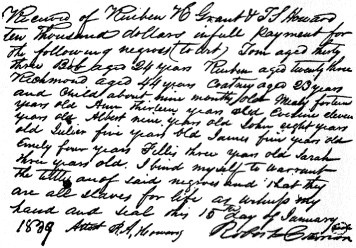 Received of Reuben H Grant & T S Howard
ten thousand dollars in full payment for
the following negroes (to wit) Tom aged thirty
three Bob aged 24 years Reuben aged twenty three
Richmond aged 44 years Courtney aged 23 years
and Child about nine months old Mealy forteen
years old Ann thirteen years old Eveline eleven
years old Albert nine years old John eight years
old Julier five years old James five years old
Emily four years Fillis three years old Sarah
three years old, I bind myself to warrant
the tittle of said negroes and that they
are all slaves for life as witness my
hand and seal this 15th day of January
1839 Attest R. S. Howard Robert